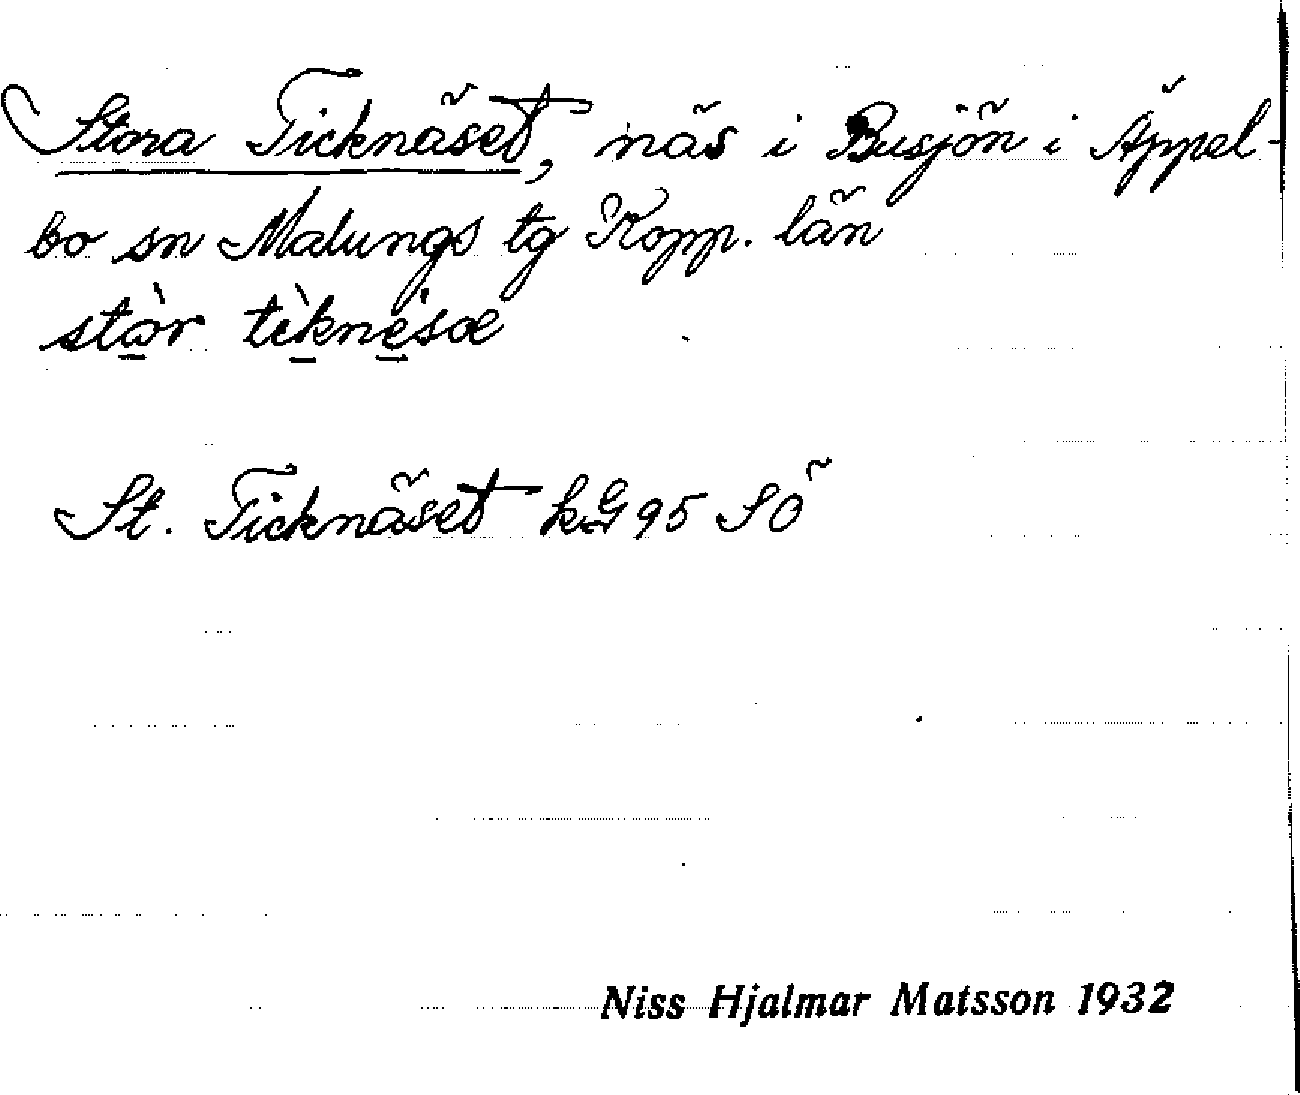 Stora Ticknäset, näs i Busjön i Äppel-
bo sn Malungs tg Kopp. län
stò̠r tì̠kné̠sœ
St. Ticknäset kG 95 SÖ
Niss Hjalmar Matsson 1932